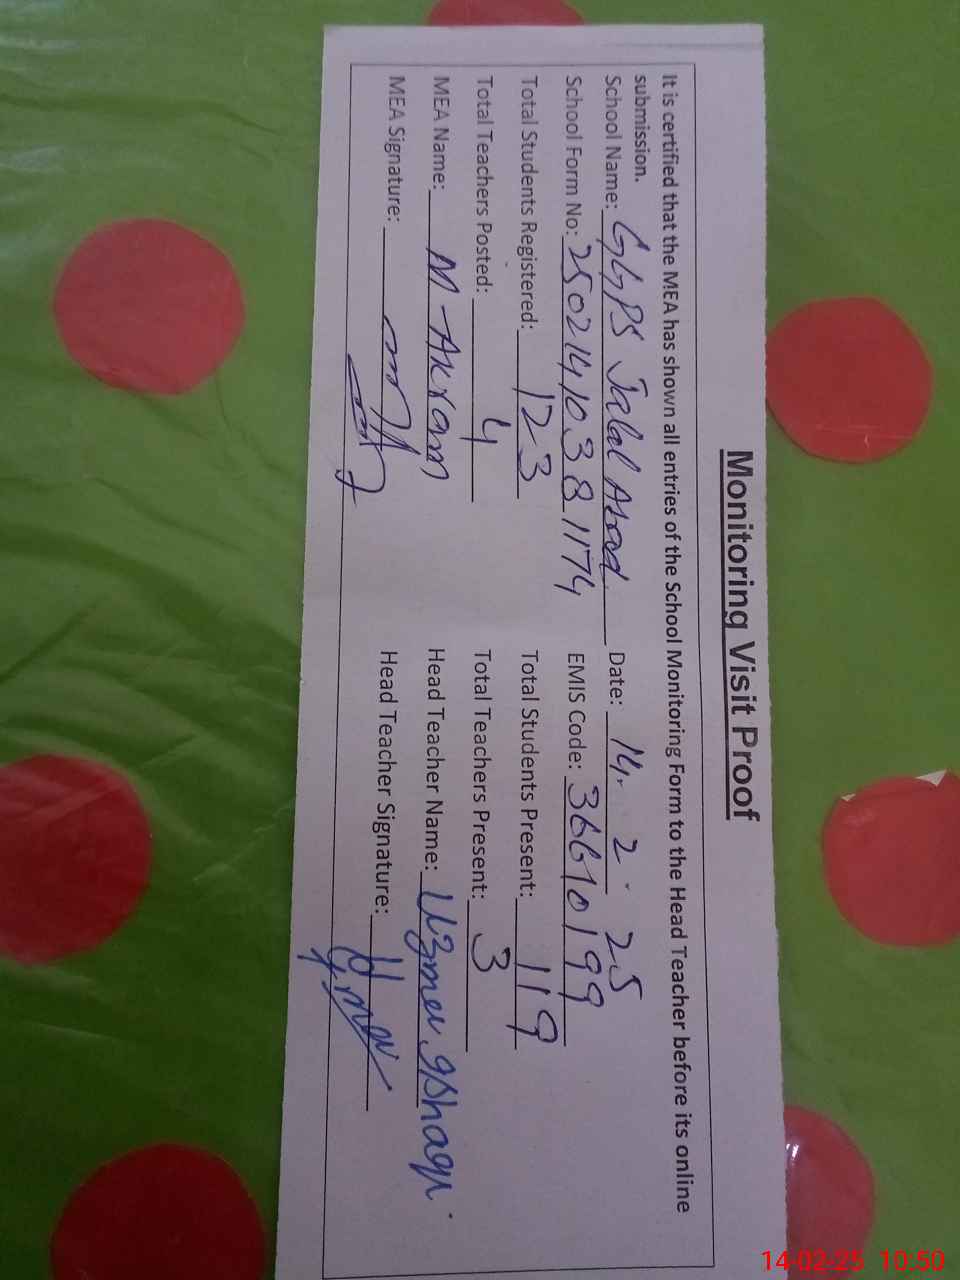 Monitoring Visit Proof
It is certified that the MEA has shown all entries of the School Monitoring Form to the Head Teacher before its online
submission.
School Name: GGPS Jalal Abad Date: 14. 2. 25
School Form No: 25021410381174 EMIS Code: 36610199
Total Students Registered: 123 Total Students Present: 119
Total Teachers Posted: 4 Total Teachers Present: 3
MEA Name: M Akram Head Teacher Name: Uzma Ishaq.
MEA Signature: Head Teacher Signature:
14-02-25 10:50